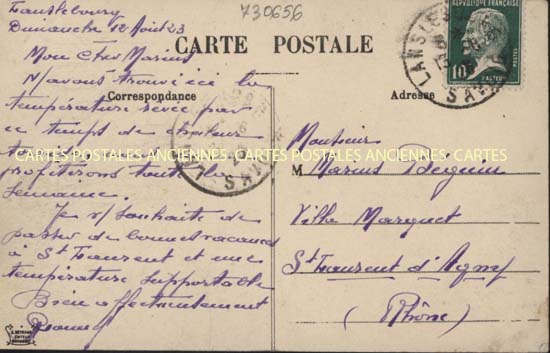 730656
Dimanche 12 Août 23
Mon cher Marius
N/avons trouvé ici la
température rêvée par
ce temps de chaleur
profiterons toute la
semaine.
Je v/ souhaite de
passer de bonnes vacances
à St Laurent et une
température supportable
Bien affectueusement
CARTE POSTALE
Correspondance
Adresse
RÉPUBLIQUE FRANÇAISE
10c
POSTES
PASTEUR
CARTES POSTALES ANCIENNES CARTES POSTALES ANCIENNES CARTES
Monsieur
M Marius
Villa Marguet
St Laurent d'Agny
(Rhône)